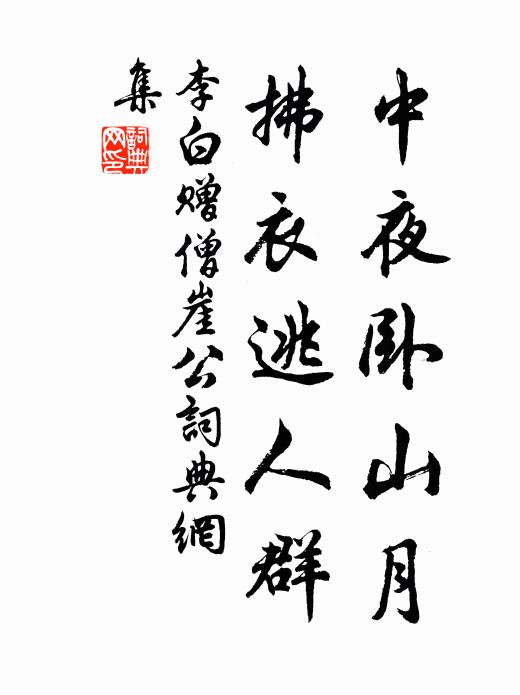 中夜卧山月
拂衣逃人群
李白赠僧崖公詞典網
集
詞典网印